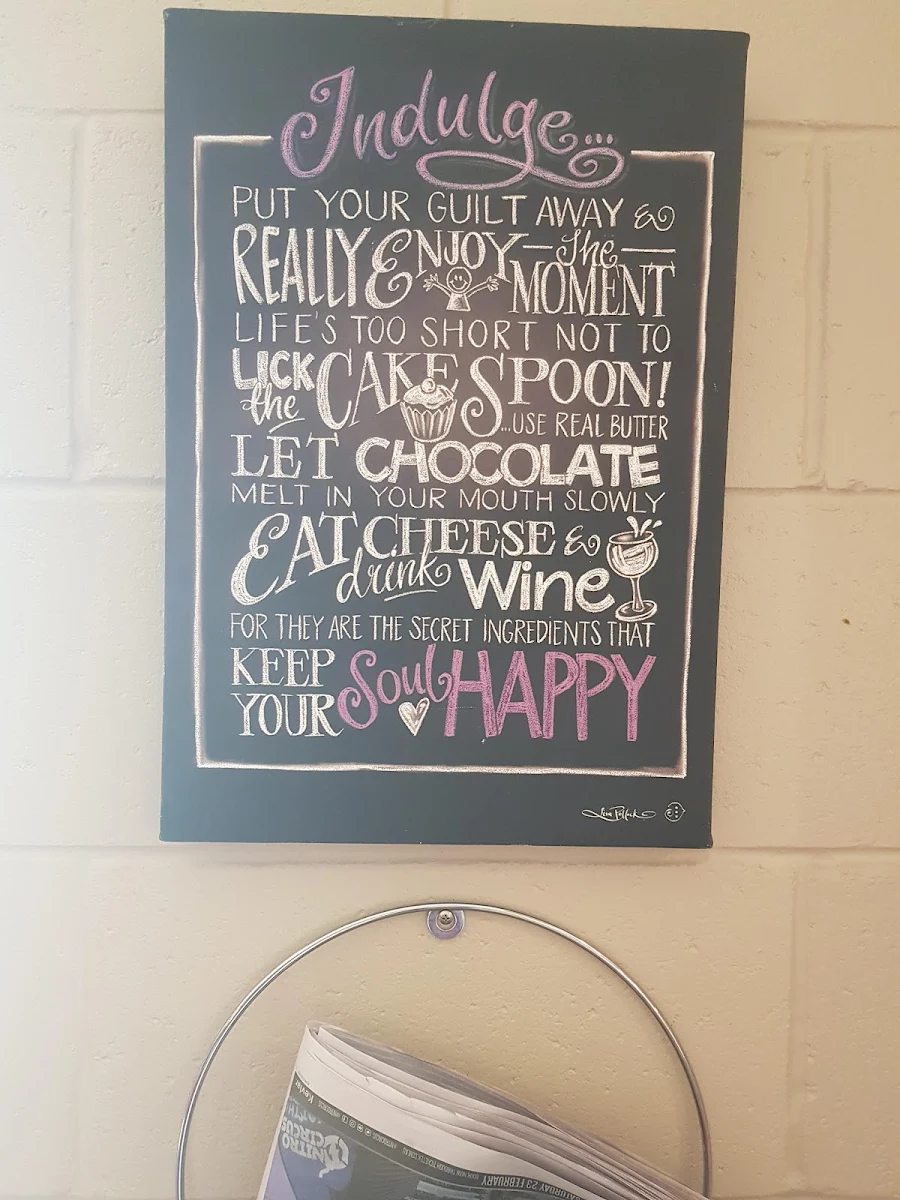 Indulge...
PUT YOUR GUILT AWAY &
REALLY ENJOY the MOMENT
LIFE'S TOO SHORT NOT TO
LICK the CAKE SPOON!
...USE REAL BUTTER
LET CHOCOLATE
MELT IN YOUR MOUTH SLOWLY
EAT CHEESE &
drink Wine
FOR THEY ARE THE SECRET INGREDIENTS THAT
KEEP YOUR Soul HAPPY
SATURDAY 23 FEBRUARY
NITRO
CIRCUS
Kevler